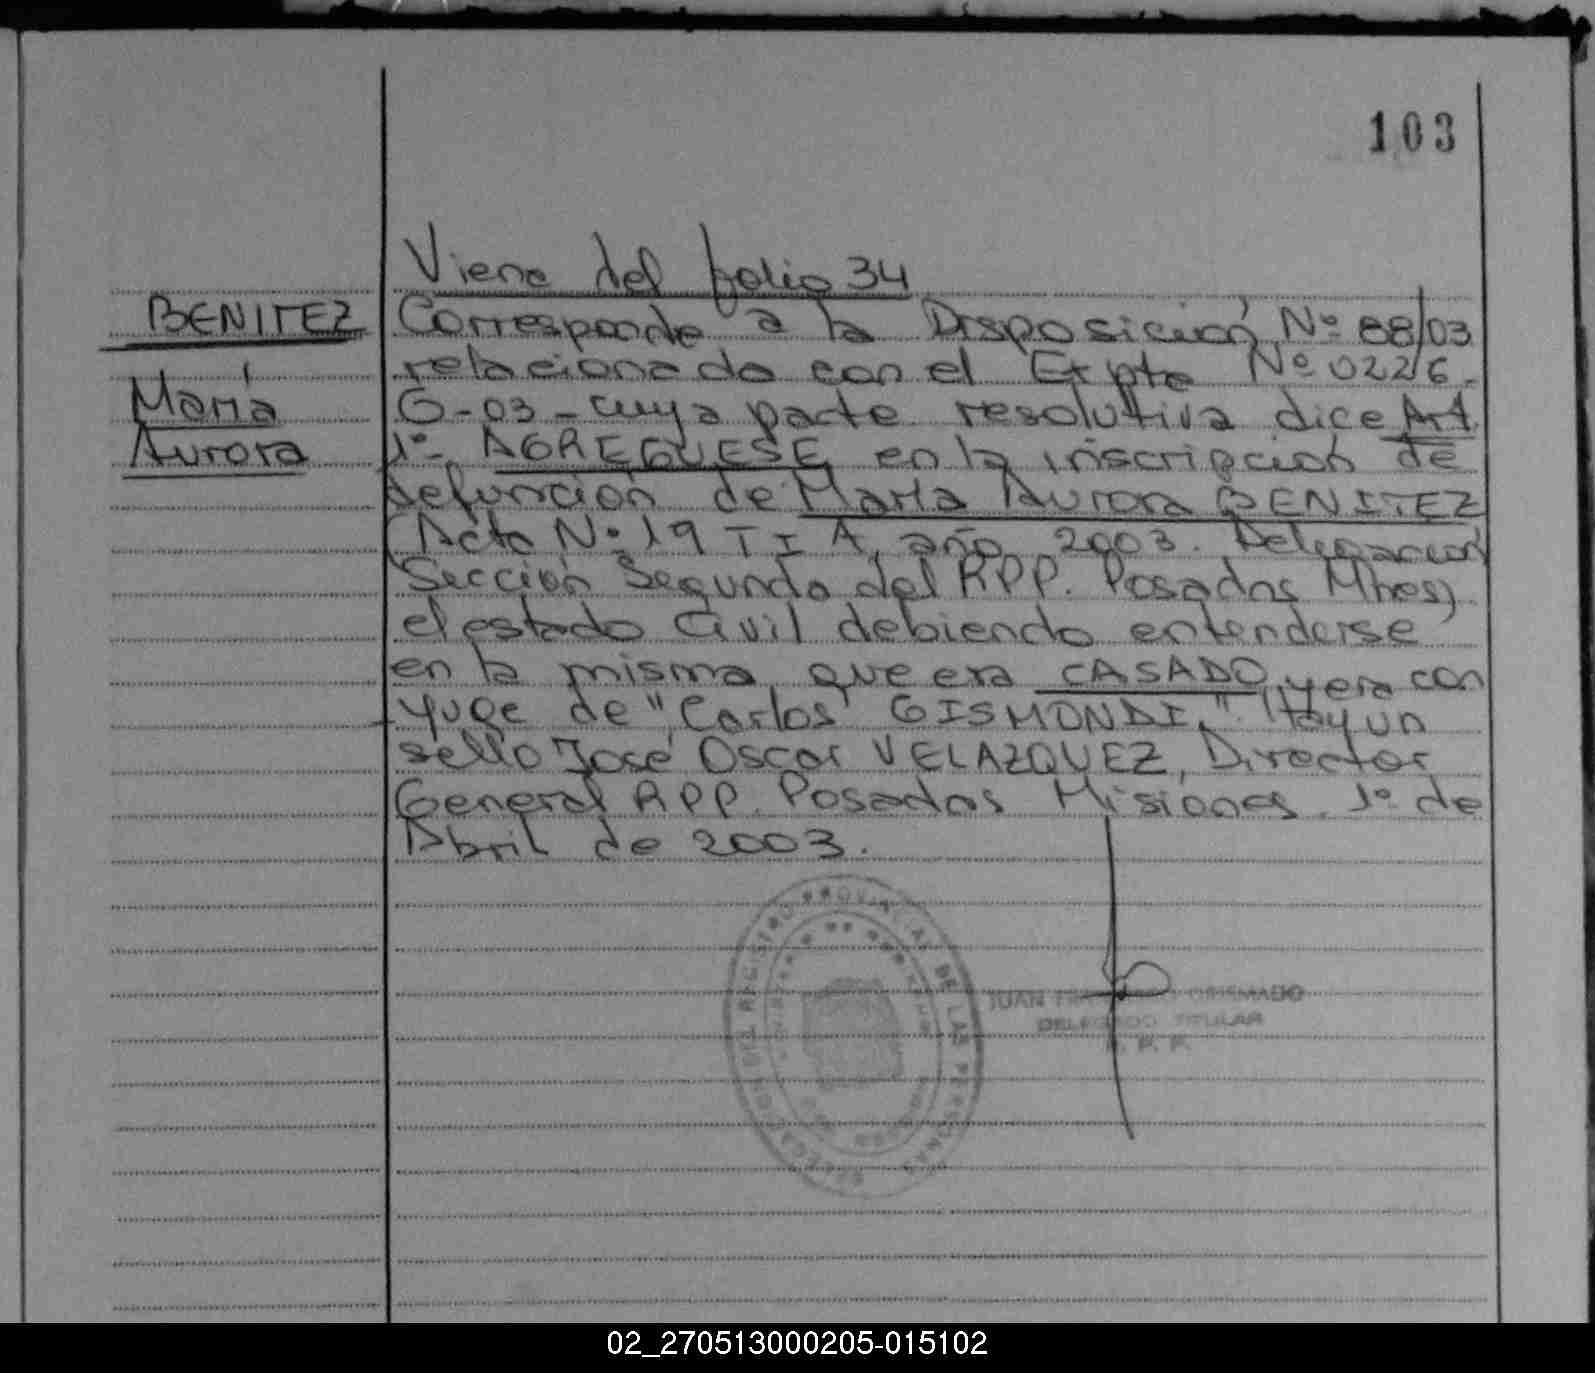 103
Viene del folio 34
BENITEZ
María
Aurora
Corresponde a la Disposición Nº 88/03
relacionado con el Expte Nº 0226.
G-03- cuya parte resolutiva dice Art
1º- AGREGUESE en la inscripción de
defunción de María Aurora BENITEZ
(Acta Nº 19 T I A, año 2003. Delegación
Sección Segunda del RPP. Posadas Mnes)
el estado Civil debiendo entenderse
en la misma que era CASADO, y era con
yuge de "Carlos GISMONDI." Hay un
sello José Oscar VELAZQUEZ, Director
General RPP. Posadas Misiones. 1º de
Abril de 2003.
DEL REGISTRO PROVINCIAL DE LAS PERSONAS
JUAN
DELEGADO TITULAR
R. P. P.
02_270513000205-015102